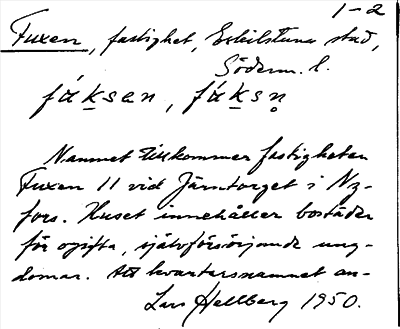 1-2
Fuxen, fastighet, Eskilstuna stad,
Söderm. l.
fúksen, fúksn̥
Namnet tillkommer fastigheten
Fuxen 11 vid Järntorget i Ny-
fors. Huset innehåller bostäder
för ogifta, självförsörjande ung-
domar. Att kvartersnamnet an-
Lars Hellberg 1950.